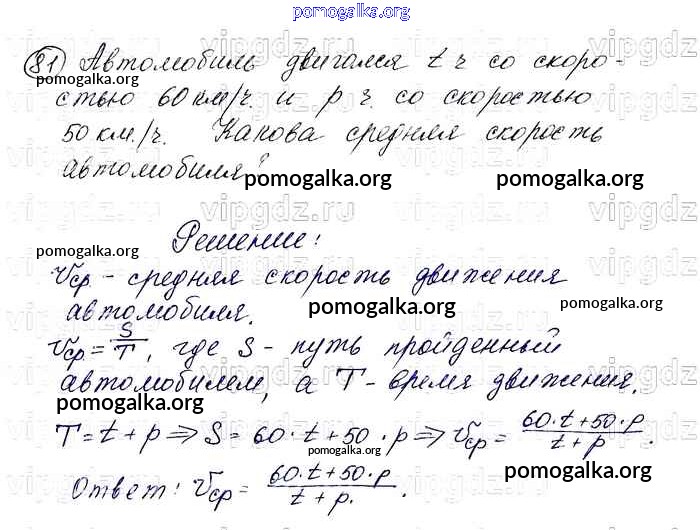 pomogalka.org
81) Автомобиль двигался t ч со скоро-
pomogalka.org
стью 60 км/ч. и p ч. со скоростью
50 км./ч. Какова средняя скорость
автомобиля?
pomogalka.org pomogalka.org
vipgdz.ru
Решение:
pomogalka.org
Vср - средняя скорость движения
автомобиля. pomogalka.org pomogalka.org
Vср = S/T, где S - путь пройденный
автомобилем, а T - время движения.
pomogalka.org pomogalka.org
T = t + p ⇒ S = 60·t + 50·p ⇒ Vср = (60·t + 50·p)/(t + p).
pomogalka.org pomogalka.org
Ответ: Vср = (60·t + 50·p)/(t + p).